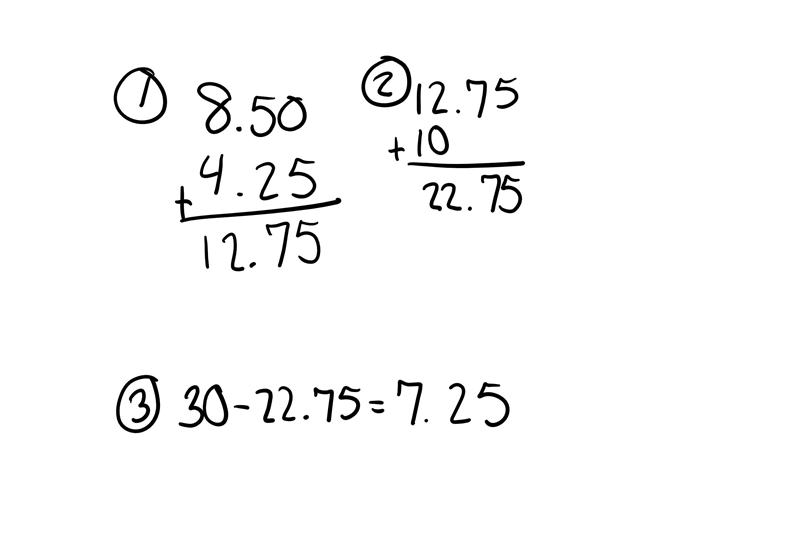 ① 8.50
+ 4.25
12.75
② 12.75
+ 10
22.75
③ 30-22.75=7.25